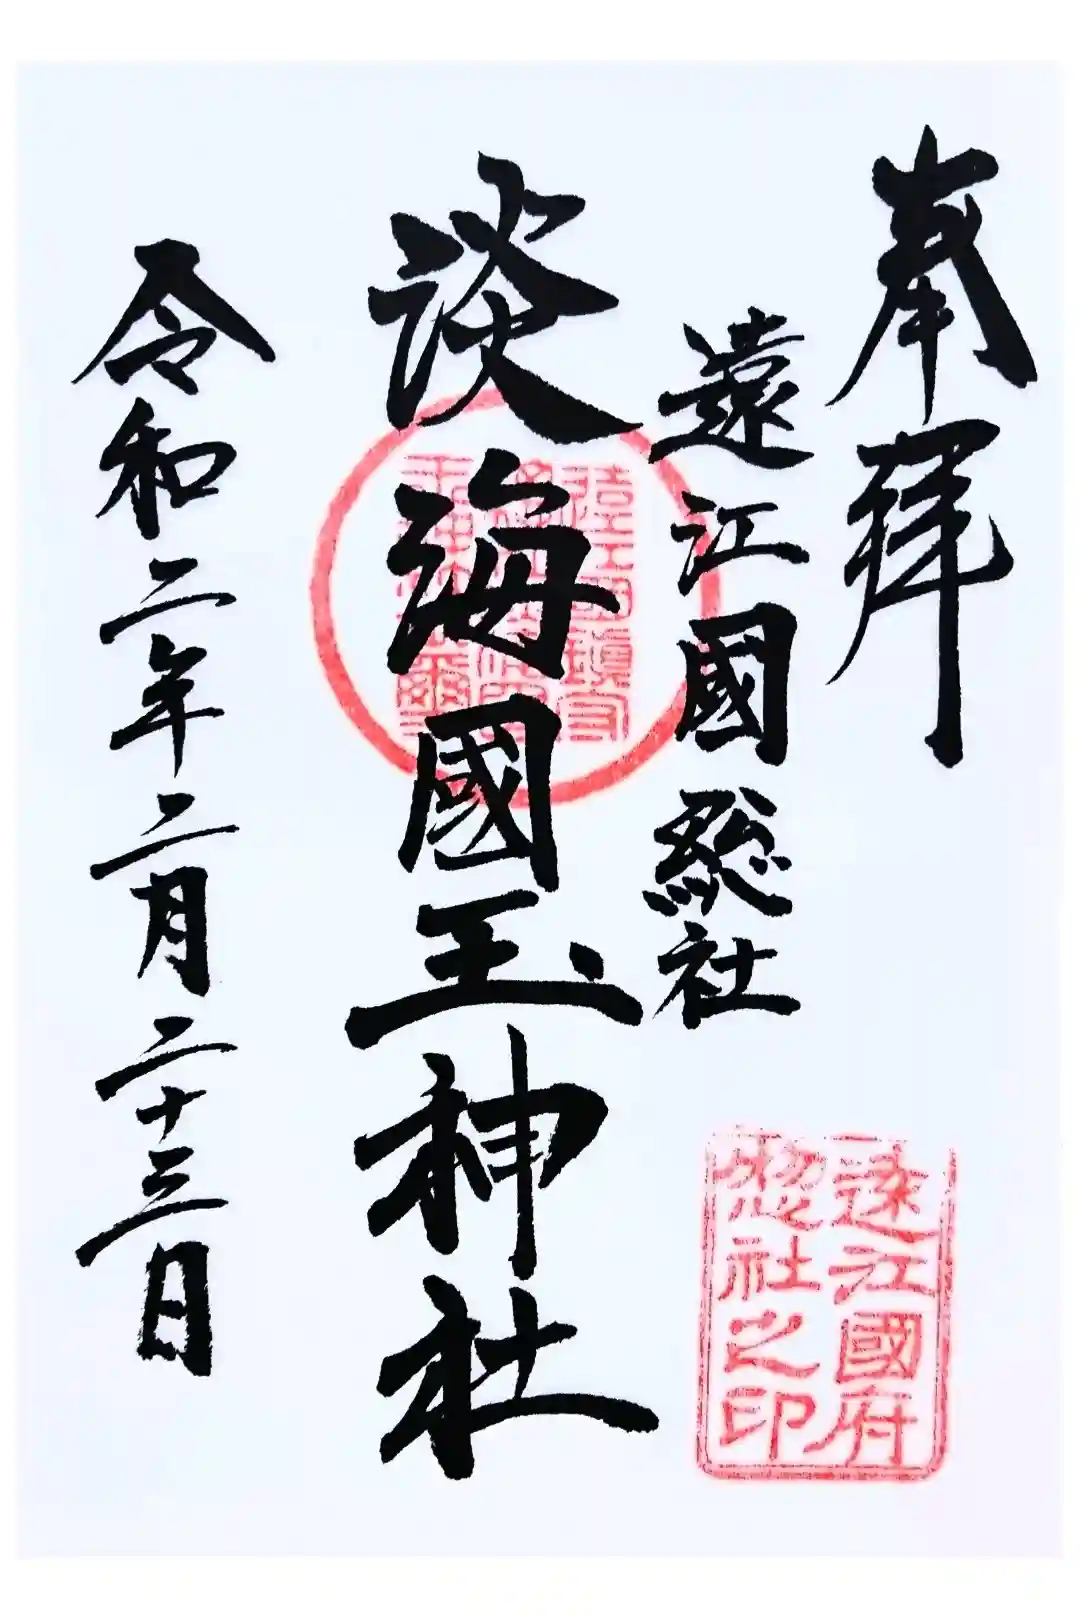 奉拝
遠江國総社
淡海國玉神社
令和二年二月二十三日
遠江國府
惣社之印